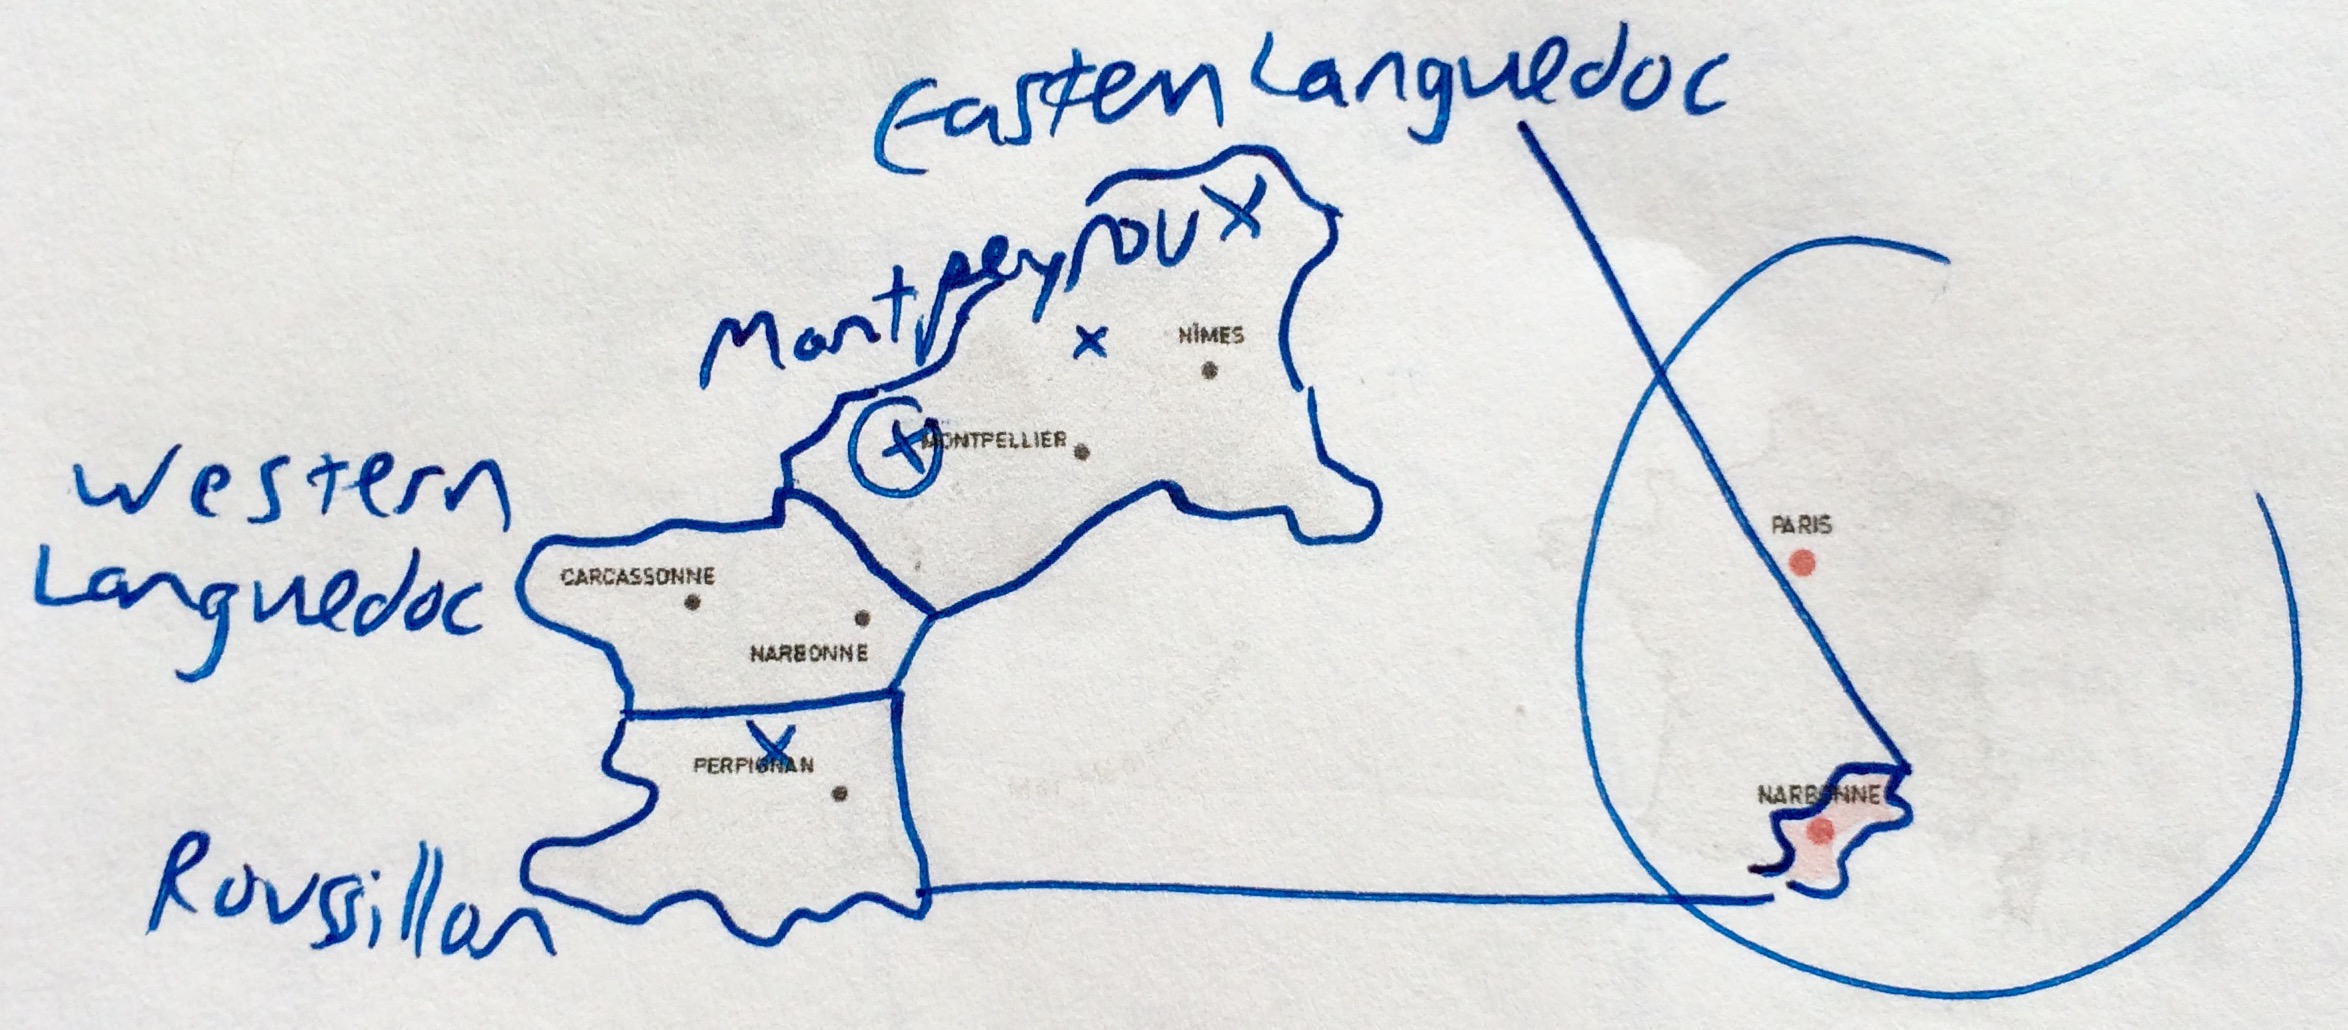 Eastern Languedoc
Montpeyroux
NÎMES
MONTPELLIER
Western
Languedoc
CARCASSONNE
NARBONNE
PERPIGNAN
Roussillon
PARIS
NARBONNE